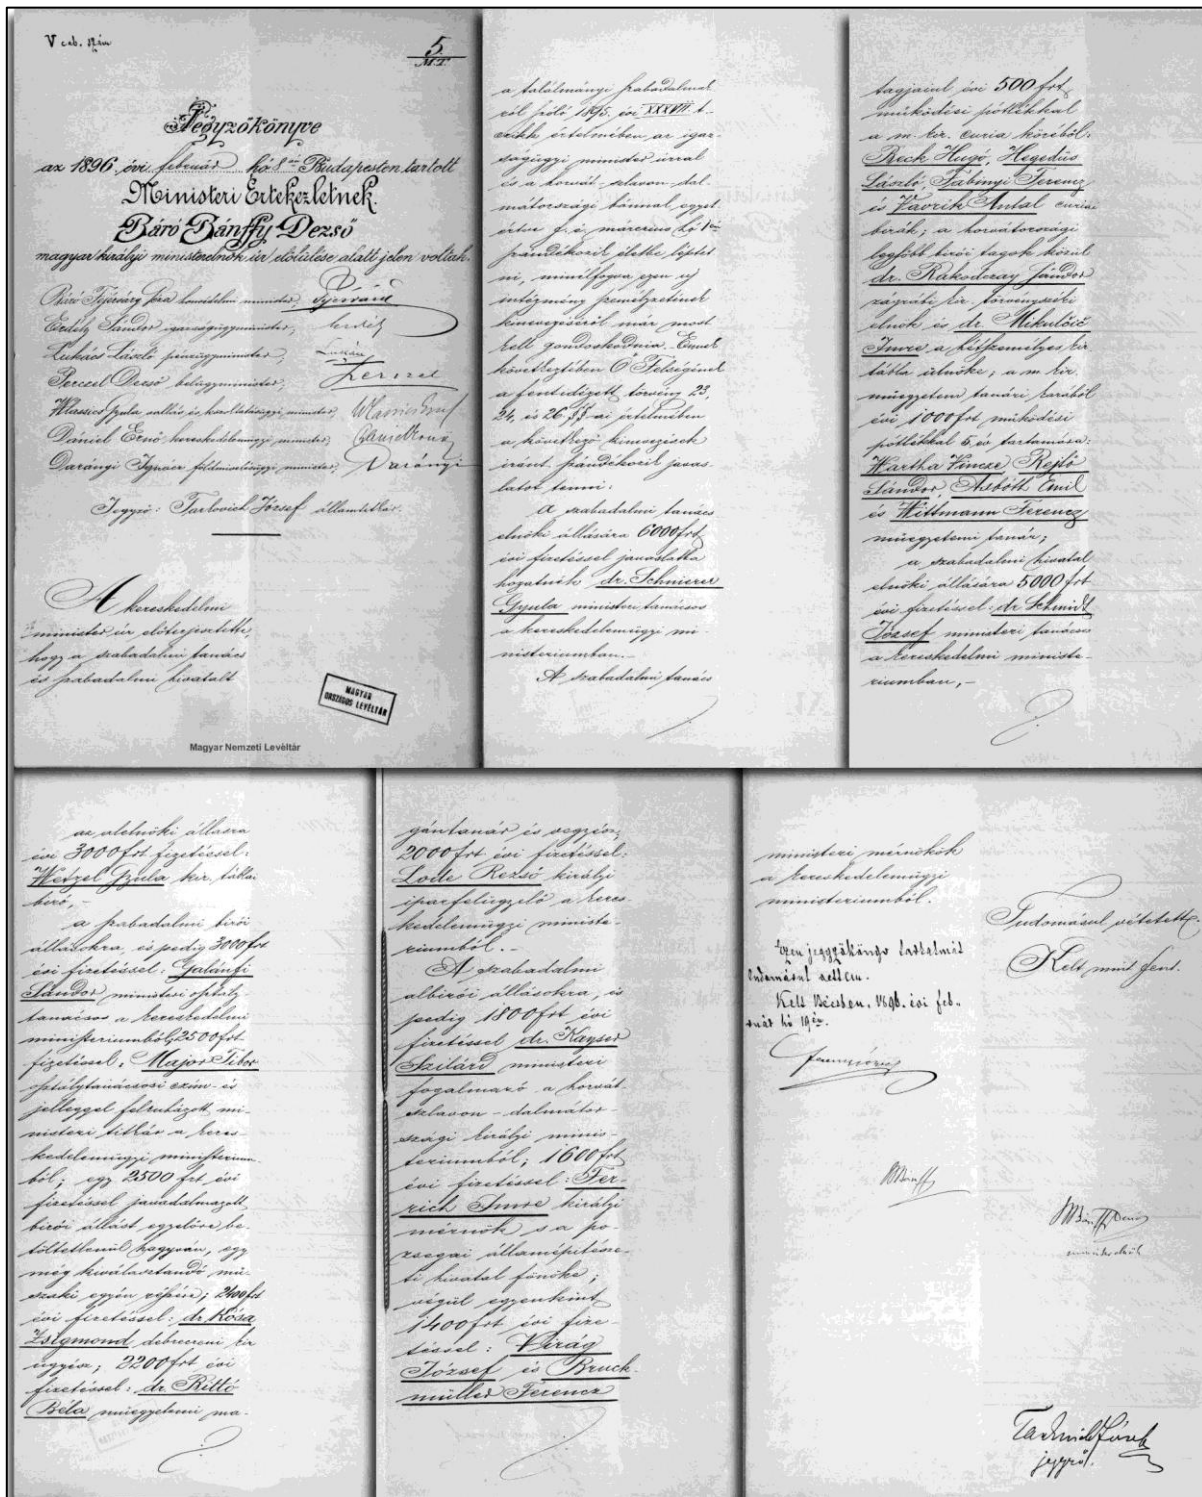 V eab. szám
5.
M.T.
Jegyzőkönyve
az 1896. évi február hó 8án Budapesten tartott
Ministeri Értekezletnek.
Báró Bánffy Dezső
magyar királyi ministerelnök úr elölülése alatt jelen voltak:
Báró Fejérváry Géza honvédelmi minister, Fejérváry
Erdély Sándor igazságügyminister, Erdély
Lukács László pénzügyminister, Lukács
Perczel Dezső belügyminister, Perczel
Wlassics Gyula vallás és közoktatásügyi minister, Wlassics Gyula
Dániel Ernő kereskedelemügyi minister, Dániel Ernő
Darányi Ignácz földmivelésügyi minister, Darányi
Jegyző: Tarkovich József államtitkár.
A kereskedelmi
minister úr előterjesztette,
hogy a szabadalmi tanács
és szabadalmi hivatalt
MAGYAR
ORSZÁGOS LEVÉLTÁR
Magyar Nemzeti Levéltár
a találmányi szabadalmak
ról szóló 1895. évi XXXVII. t.
czikk értelmében az igaz-
ságügyi minister úrral
és a horvát-szlavon-dal-
mátországi bánnal egyet-
értve f. é. márczius hó 1én
szándékozik életbe léptet
ni, minélfogva ezen uj
intézmény személyzetének
kinevezéséről már most
kell gondoskodnia. Ennek
következtében Ő Felségének
a fentidézett törvény 23,
24, és 26 §§-ai értelmében
a következő kinevezések
iránt szándékozik javas-
latot tenni:
A szabadalmi tanács
elnöki állására 6000 frt
évi fizetéssel javaslatba
hozatnék dr. Schnierer
Gyula ministeri tanácsos
a kereskedelemügyi mi-
nisteriumban.-
A szabadalmi tanács
tagjaiul évi 500 frt
működési pótlékkal
a m. kir. curia köréből:
Beck Hugó, Hegedüs
László, Fabinyi Ferencz
és Vavrik Antal curiai
birák; a horvátországi
legfőbb birói tagok közül
dr. Rakodczay Sándor
zágrábi kir. törvényszéki
elnök és dr. Mikulčić
Imre a hétszemélyes kir
tábla ülnöke; a m. kir.
műegyetem tanári karából
évi 1000 frt működési
pótlékkal 5 év tartamára:
Wartha Vincze, Rejtő
Sándor, Asbóth Emil
és Wittmann Ferencz
műegyetemi tanár;
a szabadalmi hivatal
elnöki állására 5000 frt
évi fizetéssel: dr Schmidt
József ministeri tanácsos
a kereskedelmi ministe-
riumban, -
az alelnöki állásra
évi 3000 frt fizetéssel:
Wetzel Gyula kir. táblai
biró, -
a szabadalmi birói
állásokra, és pedig 3000 frt
évi fizetéssel: Galánfi
Sándor ministeri osztály-
tanácsos a kereskedelmi
ministeriumból; 2500 frt
fizetéssel: Major Tibor
osztálytanácsosi czim- és
jelleggel felruházott mi-
nisteri titkár a keres-
kedelemügyi ministerium-
ból; egy 2500 frt évi
fizetéssel javadalmazott
birói állást egyelőre be-
töltetlenül hagyván, egy
még kiválasztandó mü-
szaki egyén részére; 2400 frt
évi fizetéssel: dr Kósa
Zsigmond debreceni kir
ügyész; 2200 frt évi
fizetéssel: dr. Rittó
Béla műegyetemi ma-
gántanár és vegyész,
2000 frt évi fizetéssel:
Lode Rezső királyi
iparfelügyelő a keres-
kedelemügyi ministe-
riumból.-
A szabadalmi
albirói állásokra, és
pedig 1800 frt évi
fizetéssel dr. Kayser
Szilárd ministeri
fogalmazó a horvát-
szlavon-dalmátor-
szági királyi minis-
teriumból; 1600 frt
évi fizetéssel: Fer-
rich Imre királyi
mérnök s a po-
zsegai államépitésze-
ti hivatal főnöke;
végül egyenkint
1400 frt évi fize-
téssel: Virág
József és Bruck-
müller Ferencz
ministeri mérnökök
a kereskedelemügyi
ministeriumból.
Tudomásul vétetett.
Kelt mint fent.
Ezen jegyzőkönyv tartalmát
tudomásul vettem.
Kelt Bécsben, 1896. évi feb-
ruár hó 19én.
Ferencz József
Bánffy
Bánffy Dezső
ministerelnök
Tarkovich József
jegyző.